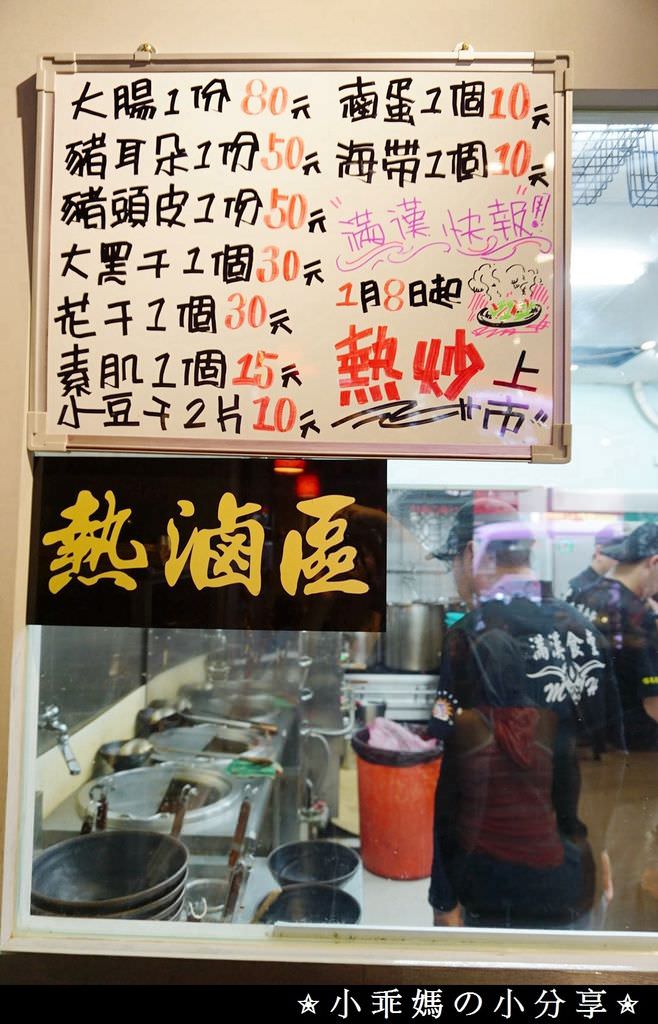 大腸1份80元
豬耳朵1份50元
豬頭皮1份50元
大黑干1個30元
花干1個30元
素肌1個15元
小豆干2片10元
滷蛋1個10元
海帶1個10元
"滿漢快報"!!
1月8日起
熱炒上
"市"
熱滷區
滿漢食堂
M H
★小乖媽の小分享★